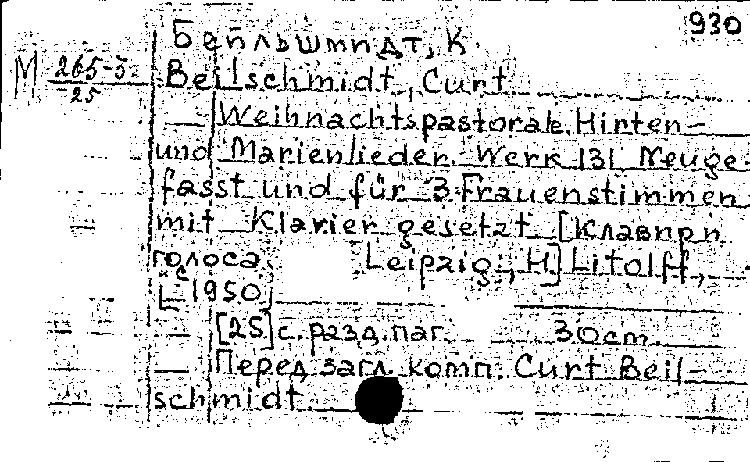 930
Бейльшмидт, К.
М 265-5
25
Beilschmidt, Curt
Weihnachtspastorale. Hirten-
und Marienlieder. Werk 131 Neuge-
fasst und für 3 Frauenstimmen
mit Klavier gesetzt [Клавир и
голоса. Leipzig, H.] Litolff,
[с 1950]
[25] с. разд. паг. 30cm.
Перед загл. комп. Curt Beil-
schmidt